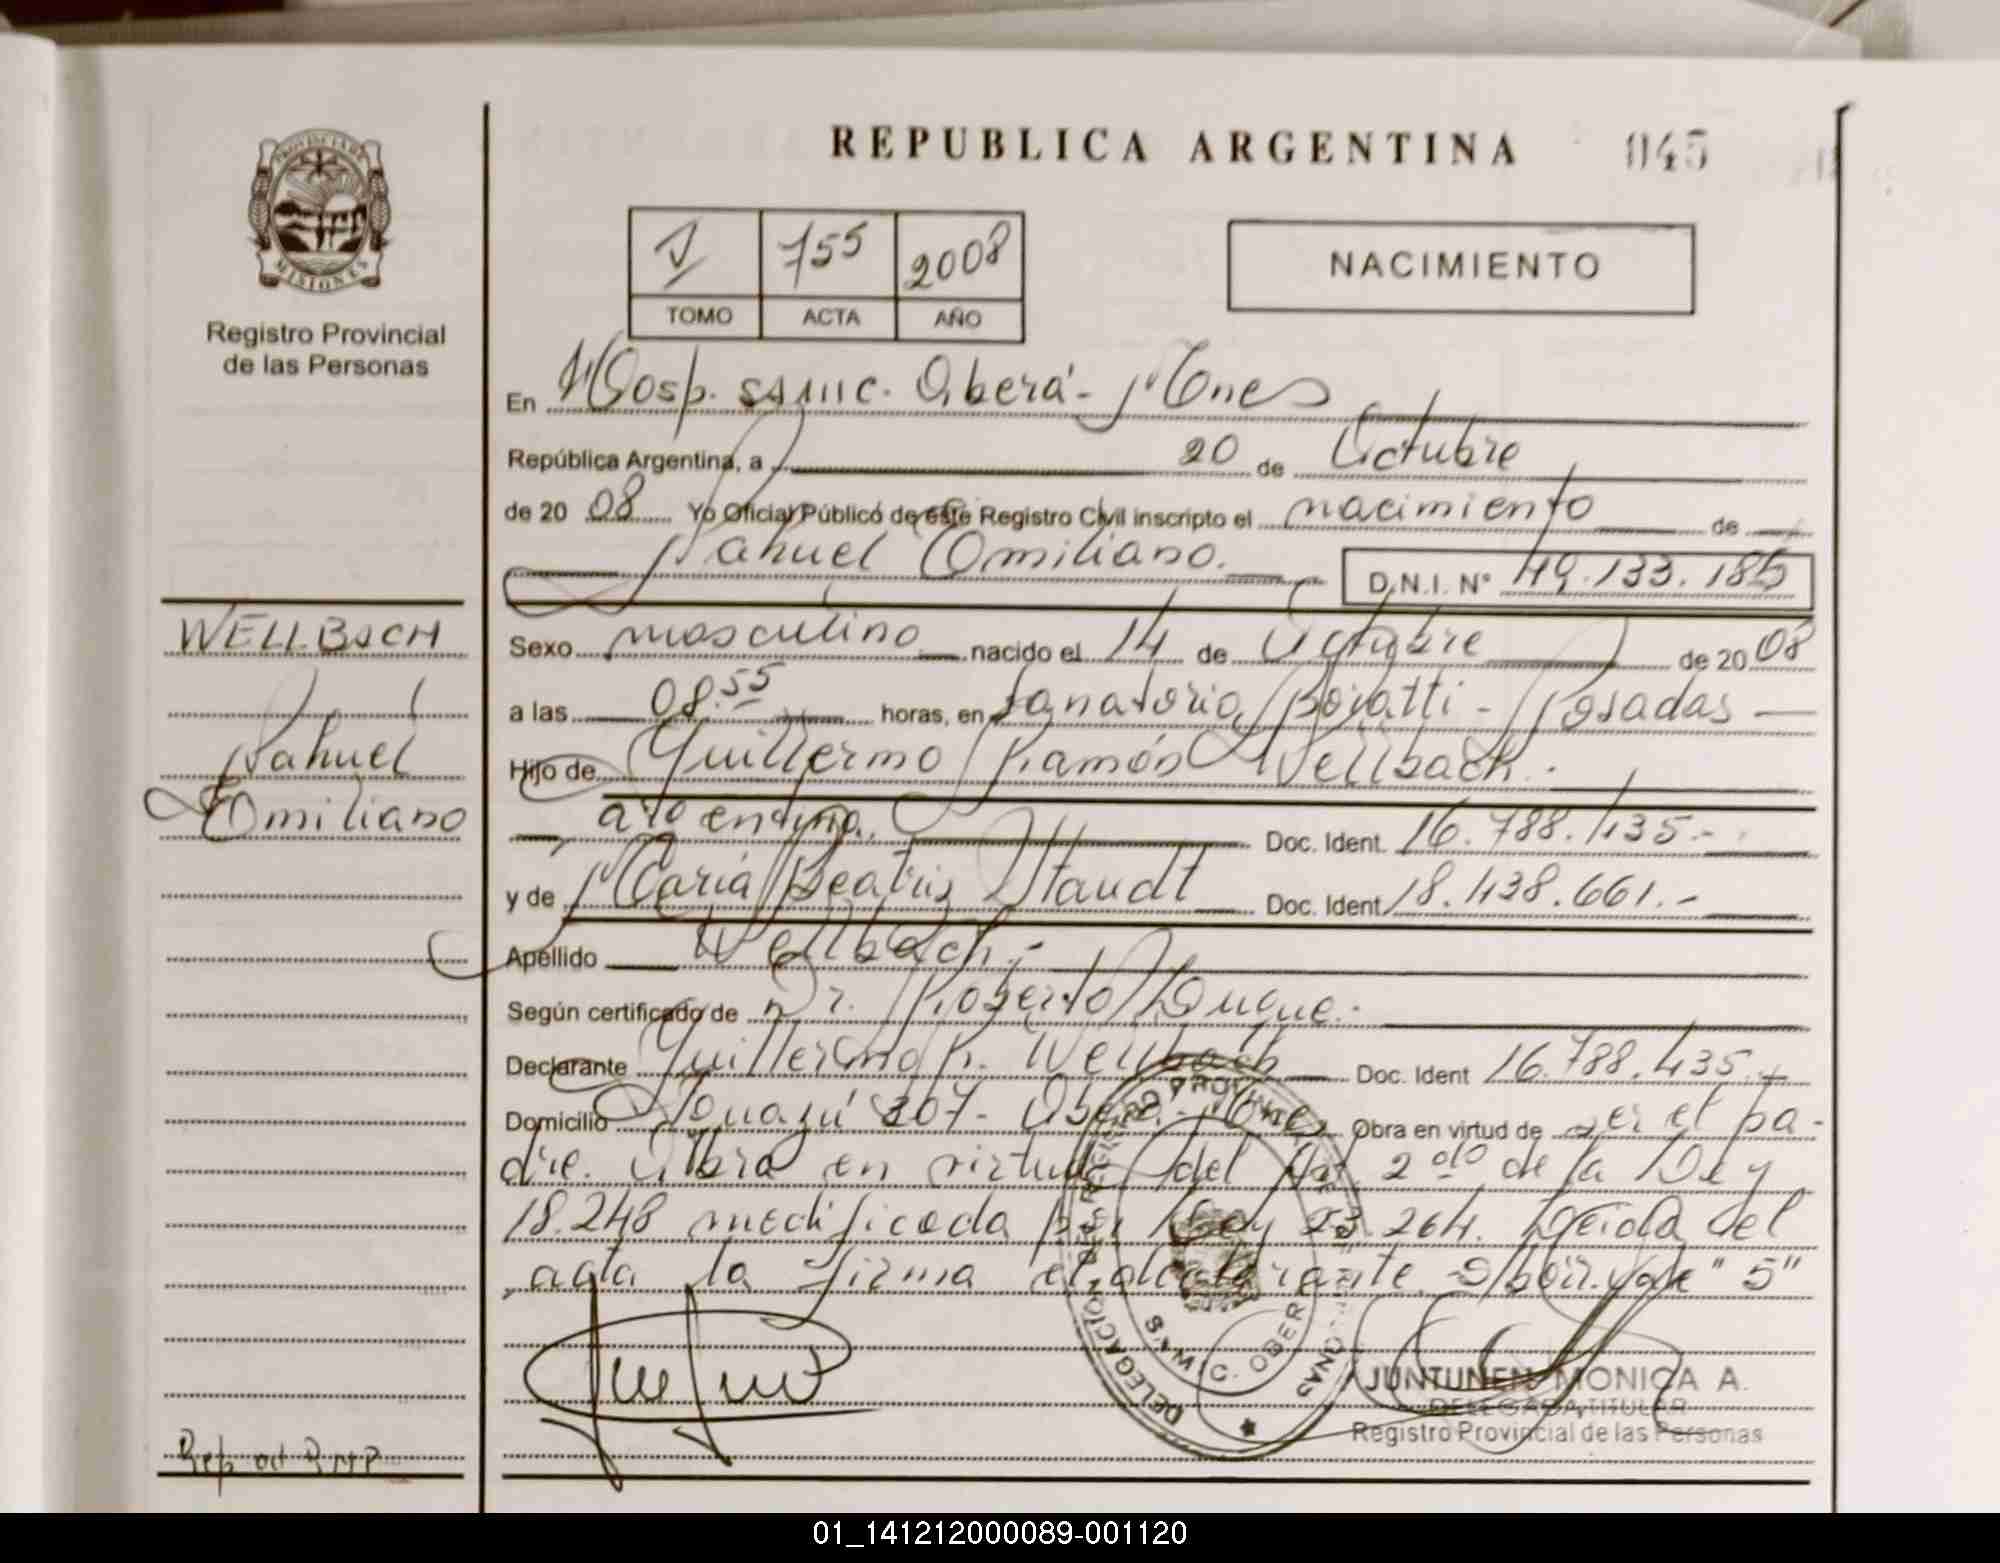 REPUBLICA ARGENTINA 045
PROVINCIA DE MISIONES
Registro Provincial
de las Personas
I 755 2008
TOMO ACTA AÑO
NACIMIENTO
En Hosp. SAMIC. Oberá - Mnes
República Argentina, a 20 de Octubre
de 20 08 Yo Oficial Público de este Registro Civil inscripto el nacimiento de
Nahuel Emiliano.
D.N.I. N° 49.133.185
WELLBACH
Nahuel
Emiliano
Sexo masculino nacido el 14 de Octubre de 20 08
a las 08.55 horas, en Sanatorio Boratti - Posadas
Hijo de Guillermo Ramón Wellbach.
argentino. Doc. Ident. 16.788.435.-
y de María Beatriz Staudt Doc. Ident 18.438.661.-
Apellido Wellbach.-
Según certificado de Dr. Roberto Duque.-
Declarante Guillermo R. Wellbach Doc. Ident 16.788.435.-
Domicilio Iguazú 307 - Oberá - Mnes Obra en virtud de ser el pa-
dre. Obra en virtud del Art. 2do de la Ley
18.248 modificada por Ley 23.264. Leída del
acta la firma el declarante. "5"
DELEGACIÓN S.A.M.I.C. OBERÁ
JUNTUNEN MONICA A.
DELEGADA TITULAR
Registro Provincial de las Personas
01_141212000089-001120